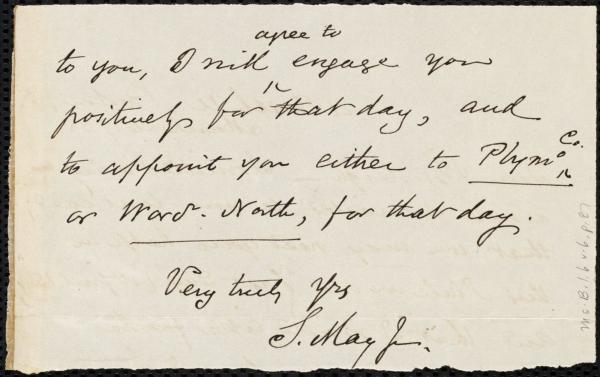 agree to
to you, I will engage you
positively for that day, and
to appoint you either to Plymo. Co.
or Word. North, for that day.
Very truly Yrs
S. May Jr.
Ms. B. 1. 6 v. 6, p. 87